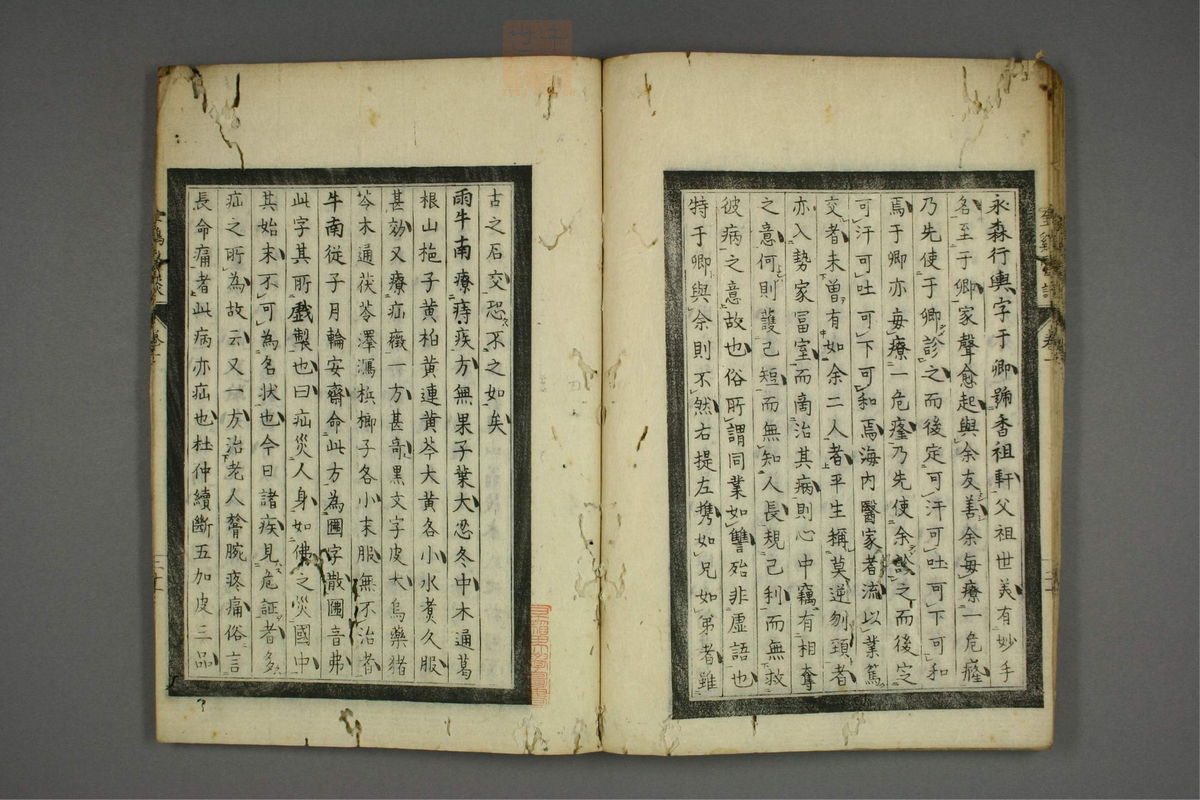 永森行輿字于卿號杏祖軒父祖世美有妙手
名至于卿家聲愈起與余友善余每療一危癃
乃先使于卿診之而後定可汗可吐可下可和
焉于卿亦每療一危癃乃先使余診之而後定
可汗可吐可下可和焉海內醫家者流以業篤
交者未曾有如余二人者平生稱莫逆刎頚者
亦入勢家冨室而啇治其病則心中竊有相奪
之意何則護己短而無知人長規己利而無救
彼病之意故也俗所謂同業如讐殆非虛語也
特于卿與余則不然右提左携如兄如弟者雖
古之石交恐不之如矣
雨牛南療痔疾方無果子葉大忍冬中木通葛
根山梔子黃柏黃連黃芩大黃各小水煮久服
甚効又療疝癥一方甚竒黑文字皮大烏藥猪
苓木通茯苓澤瀉檳榔子各小末服無不治者
牛南從子月輪安齋命此方為圕字散圕音弗
此字其所戲製也曰疝災人身如佛之災國中
其始末不可為名状也今日諸疾見危証者多
疝之所為故云又一方治老人臀腕疼痛俗言
長命痛者此病亦疝也杜仲續斷五加皮三品